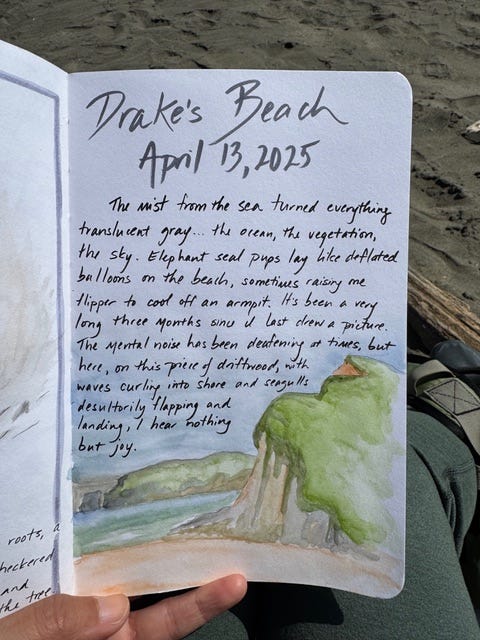 Drake's Beach
April 13, 2025
The mist from the sea turned everything
translucent gray... the ocean, the vegetation,
the sky. Elephant seal pups lay like deflated
balloons on the beach, sometimes raising one
flipper to cool off an armpit. It's been a very
long three months since I last drew a picture.
The mental noise has been deafening at times, but
here, on this piece of driftwood, with
waves curling into shore and seagulls
desultorily flapping and
landing, I hear nothing
but joy.
roots, a
heckered
and
the tree